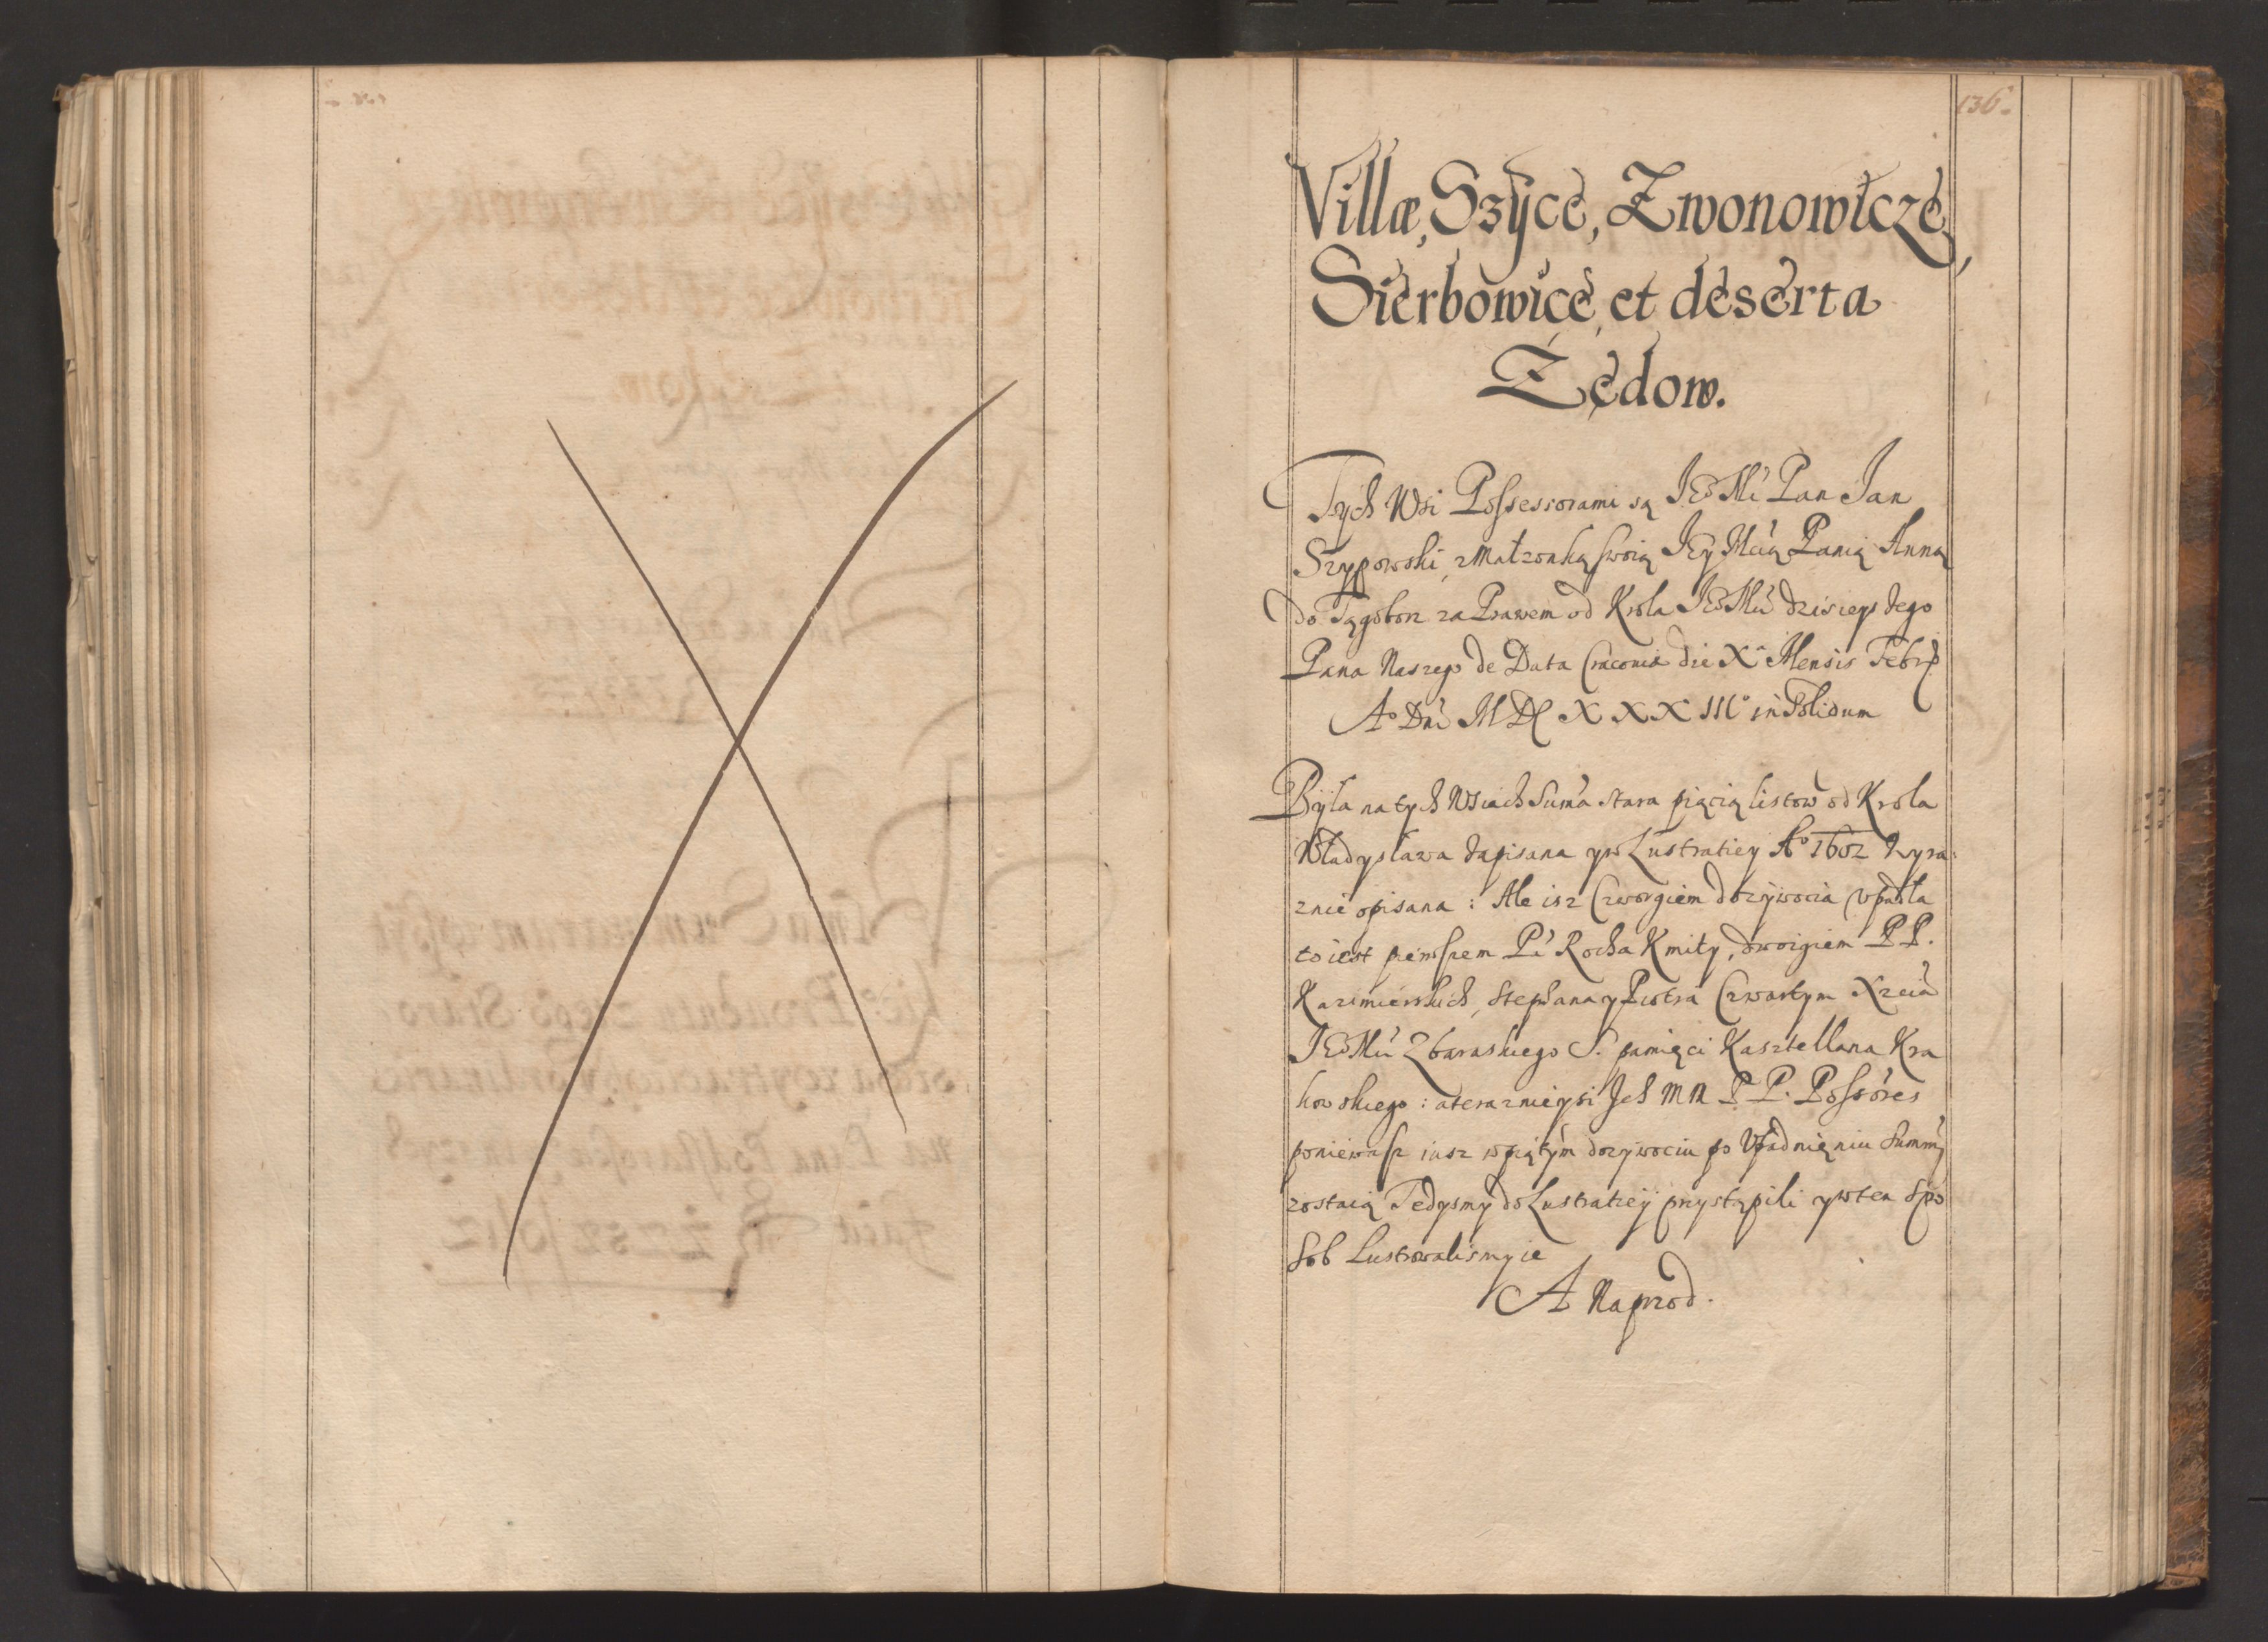 136.
Villæ, Szÿce, Zwonowicze,
Sierbowice, et deserta
Zędow.
Tych Wsi Possessorami są JEo Mć Pan Jan
Szypowski, z Małzonką swoią JEy Mcią Panią Anną
do Tęgoborz za Prawem od Krola JEo Mći dzisieyszego
Pana Naszego de Data Cracoviæ die Xa Mensis Febr.
Ao Dni MDCXXXIIIo in Solidum
Była na tych Wsiach Suma stara pięcią listow od Krola
Władysława zapisana y w Lustratiey Ao 1602 wyra:
znie opisana: Ale isz Czworgiem dozywocia vpadła
to iest pierwszem Pa Rocha Kmity, dwoigiem PP.
Kazimierskich, Stephana y Piotra Czwartym Xzcia
JEo Mći Zbaraskiego S. pamięci Kasztellana Kra
kowskiego: a teraznieysi Jch MM PP. Possores
poniewasz iusz w piątym dozywociu po Vpadnięniu Summy
zostaią Tedysmy do Lustratiey przystąpili y w ten Spo
sob Lustrowalismy ie
A Naprzod.